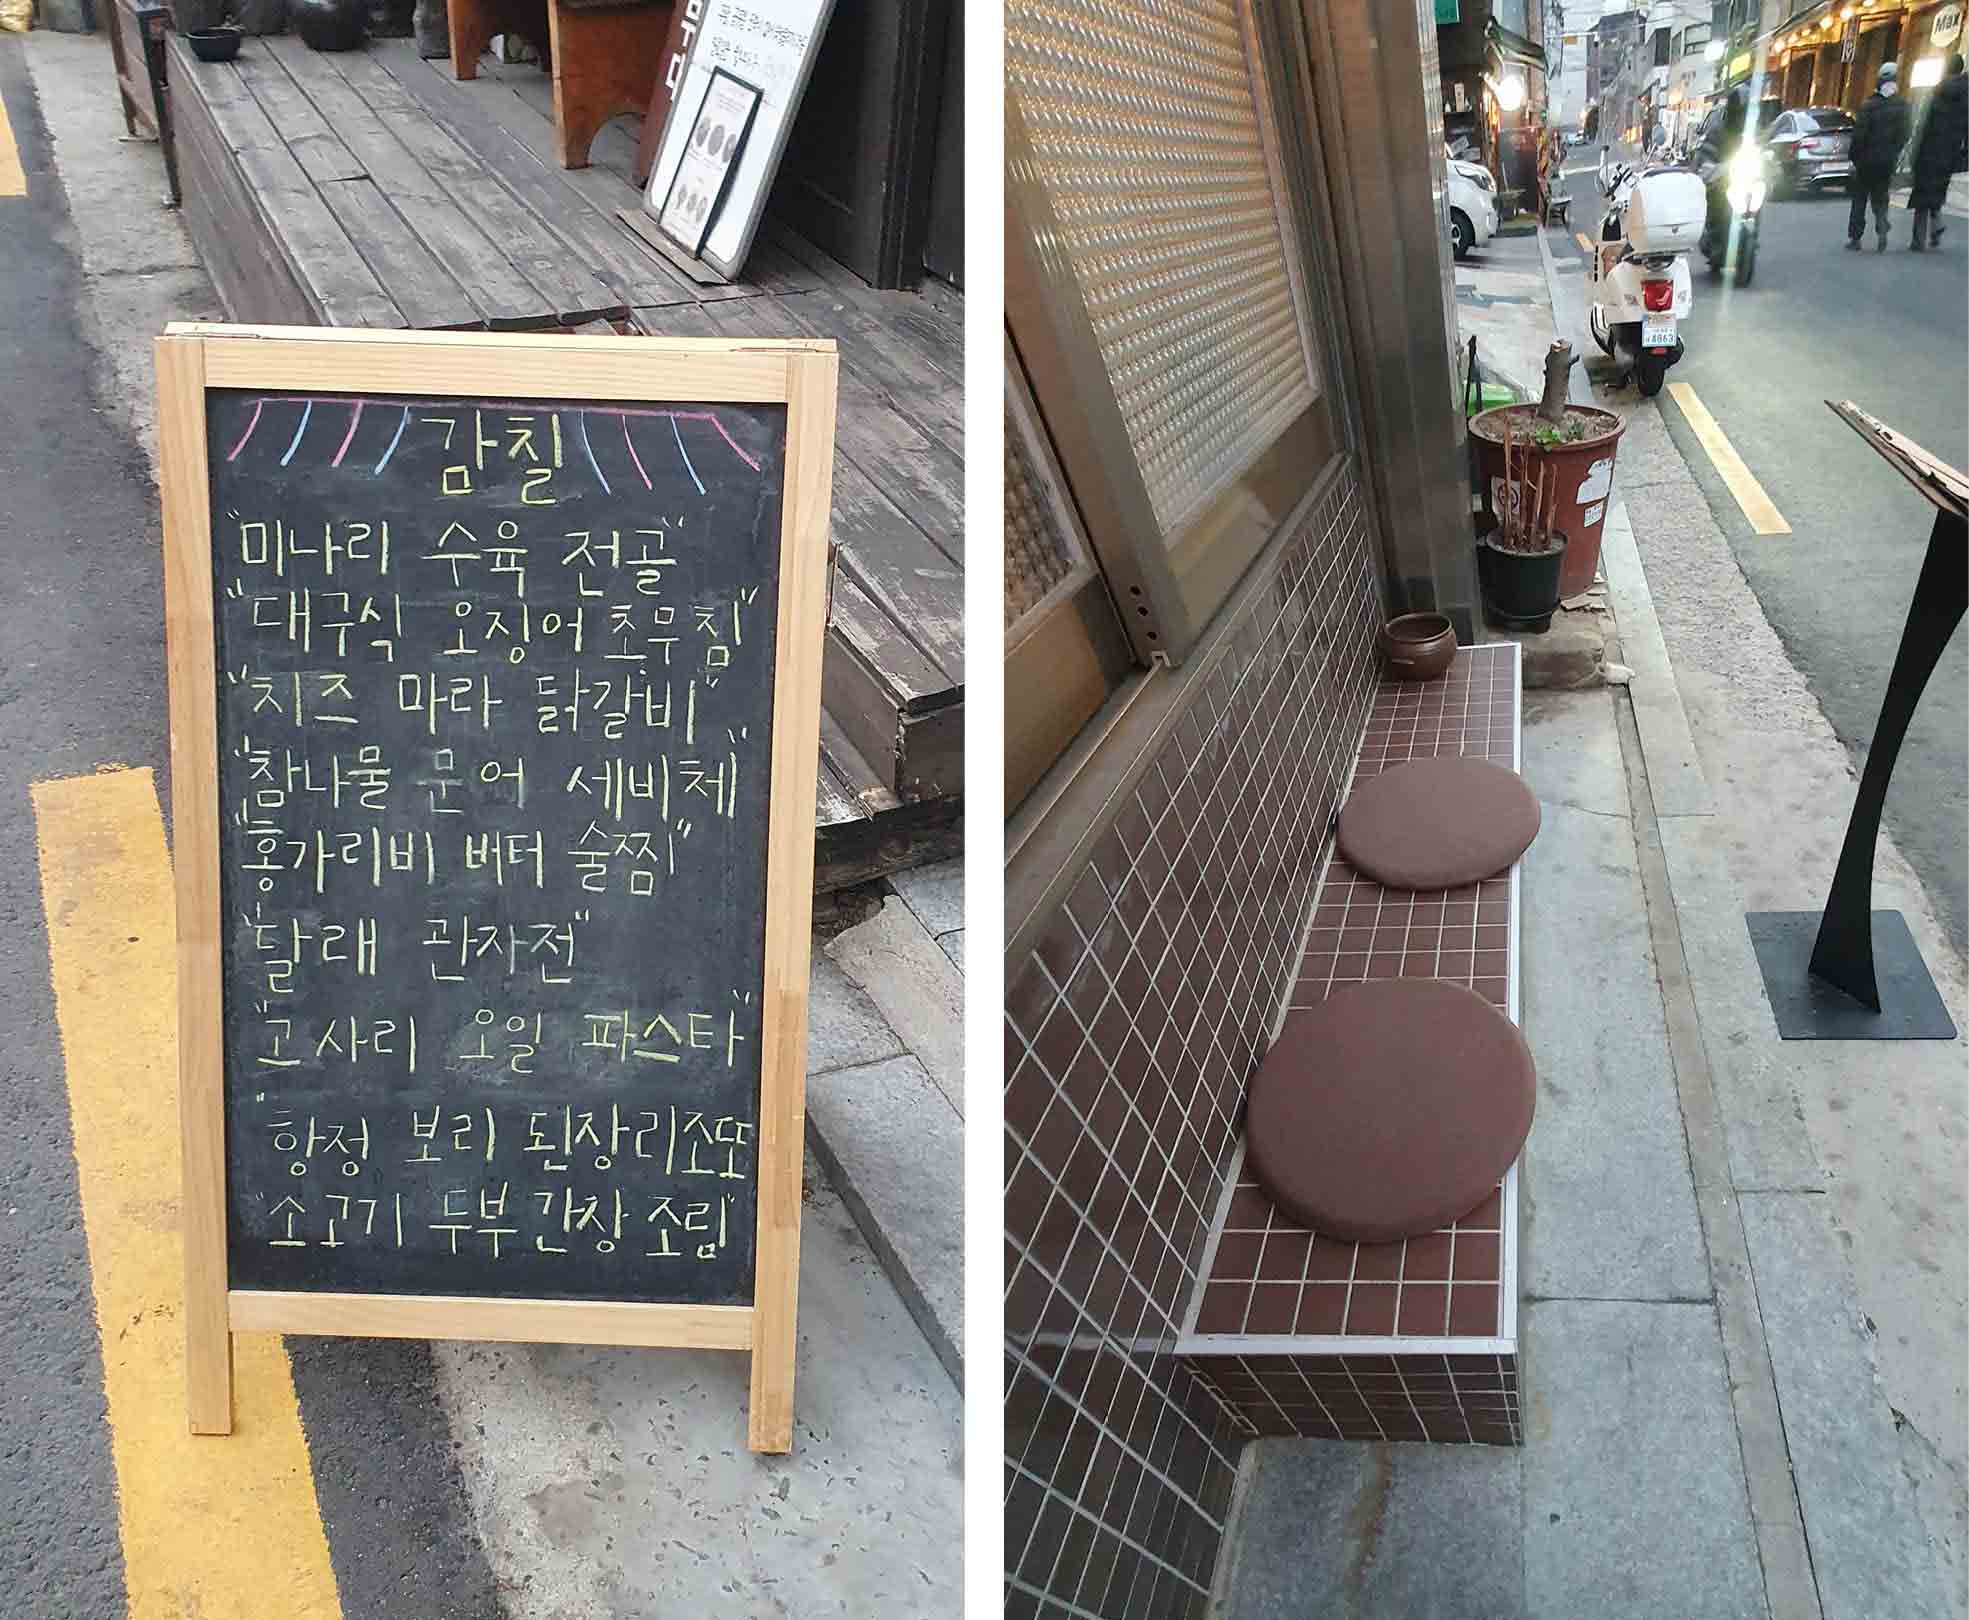 감칠
"미나리 수육 전골"
"대구식 오징어 초무침"
"치즈 마라 닭갈비"
"참나물 문어 세비체"
"홍가리비 버터 술찜"
"달래 관자전"
"고사리 오일 파스타"
"항정 보리 된장리조또
"소고기 두부 간장 조림"
Max
4863